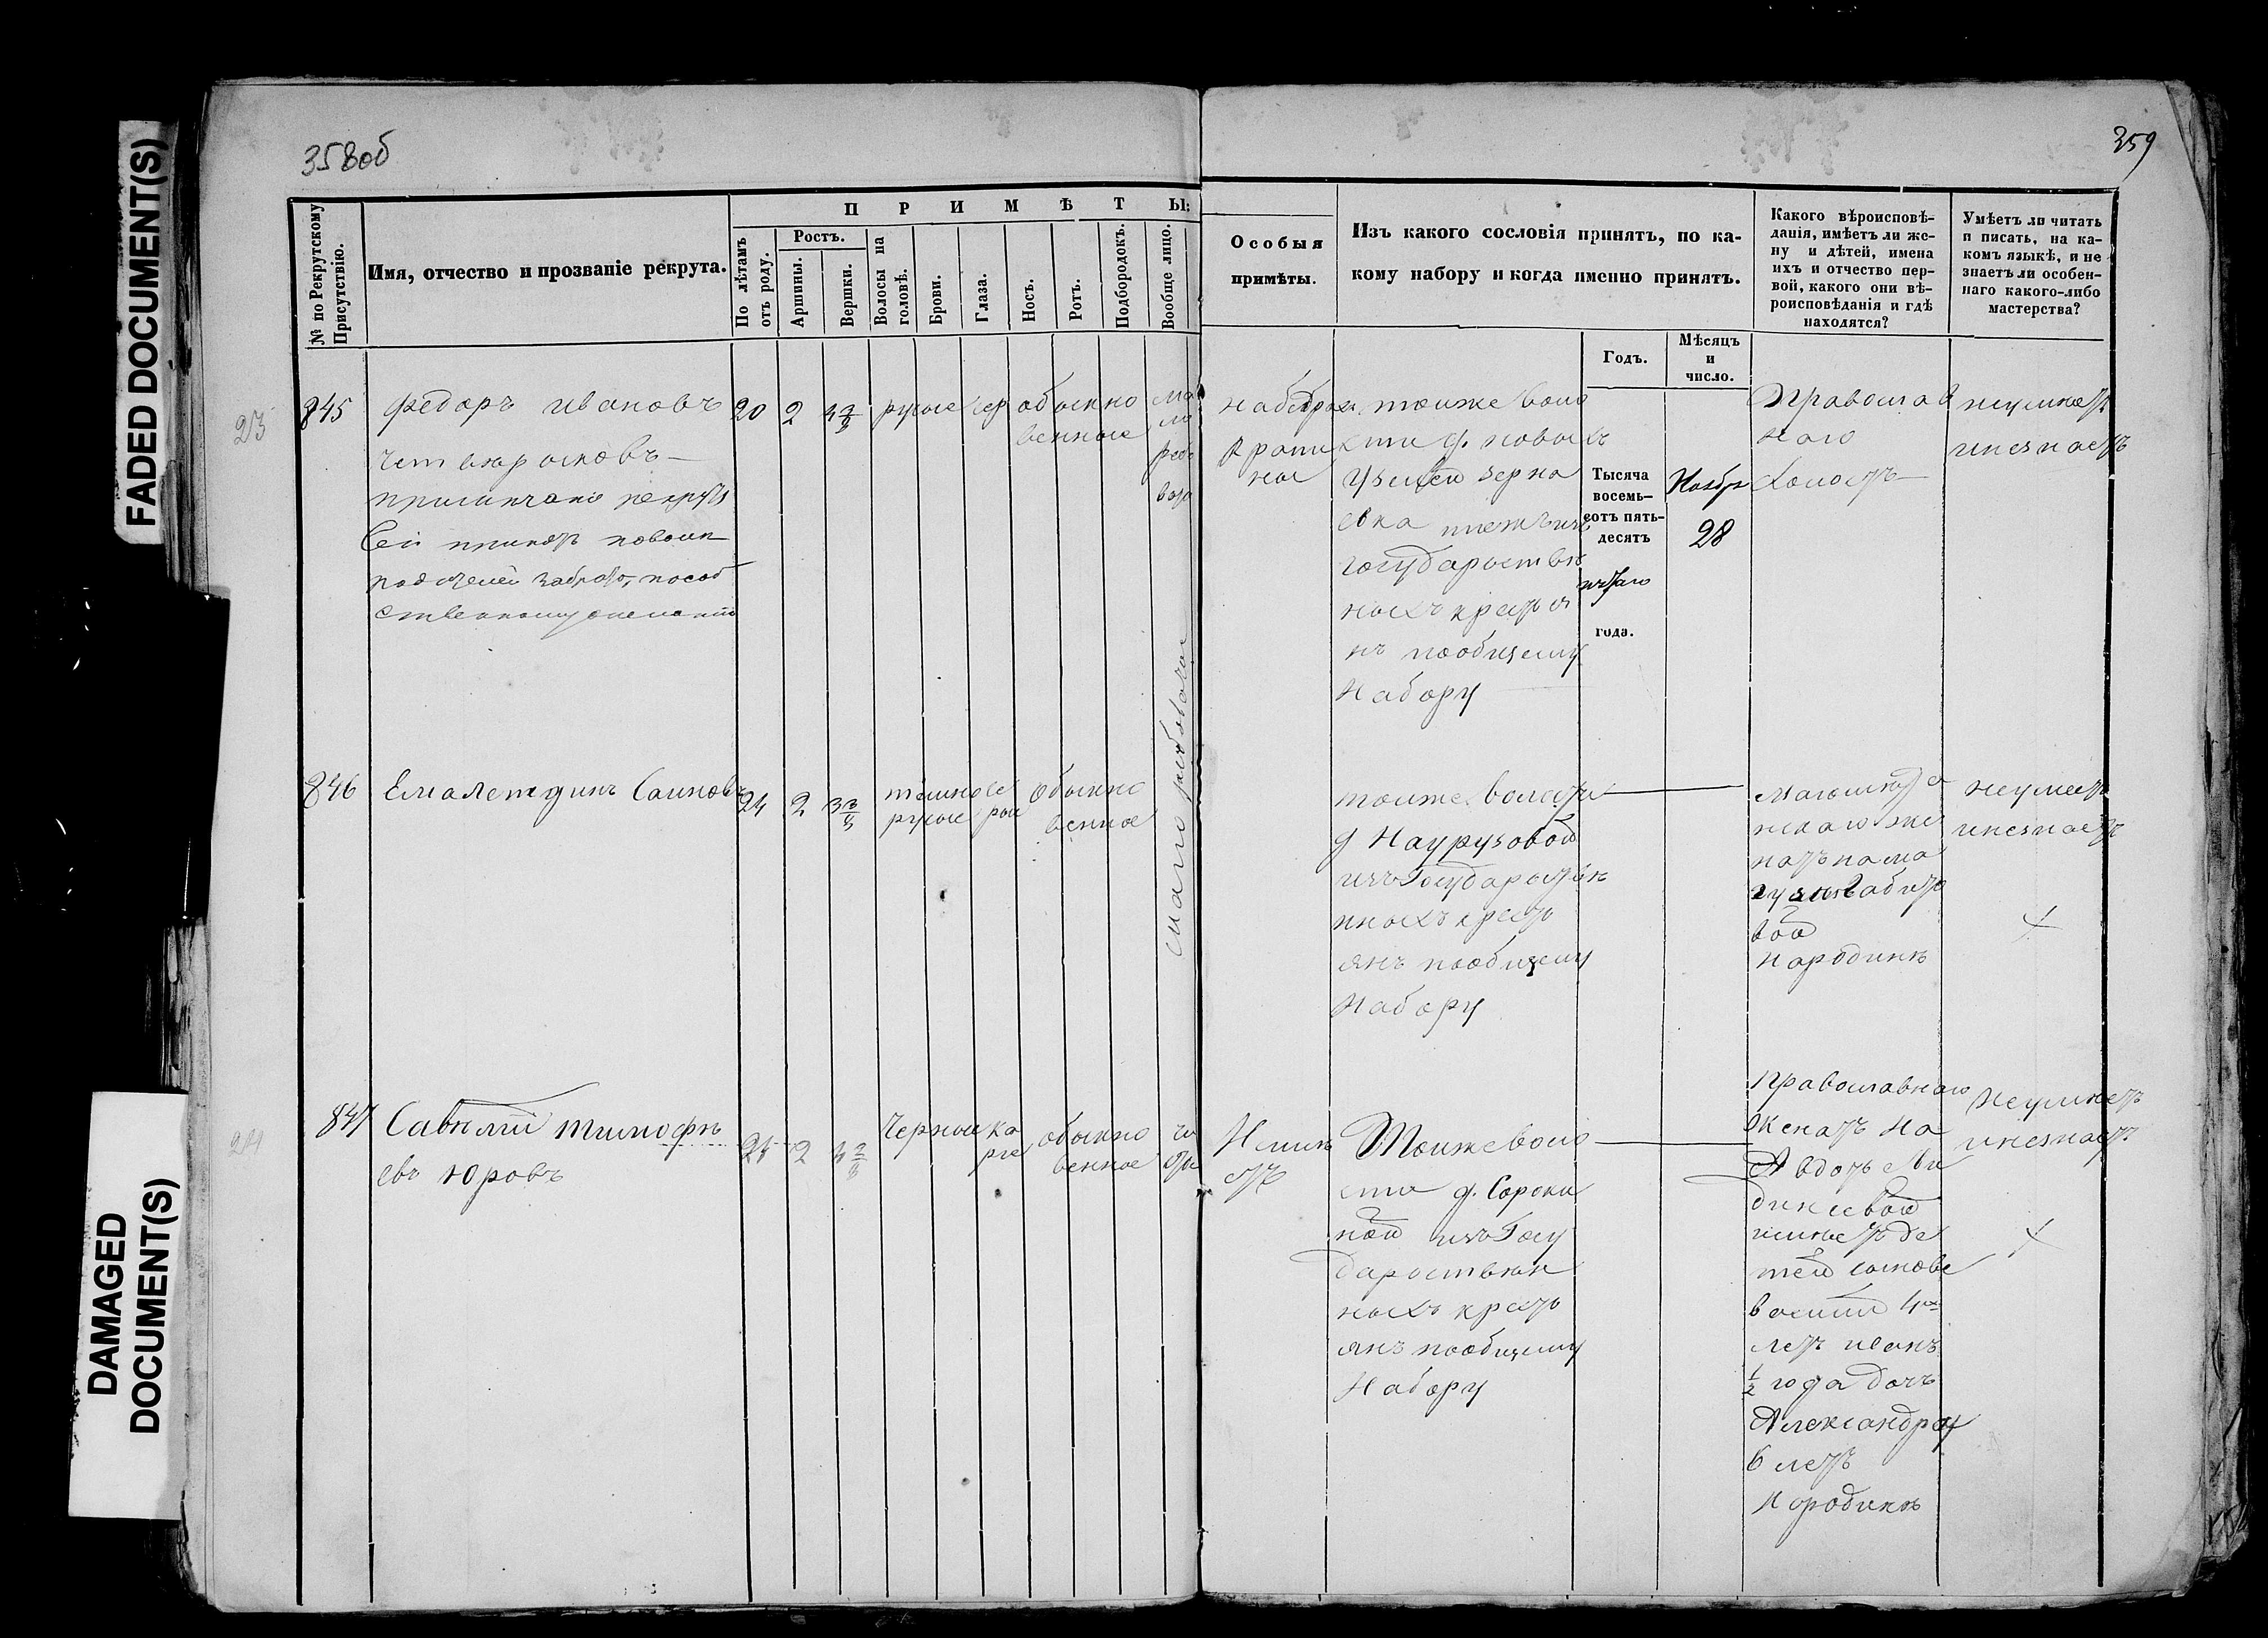 FADED DOCUMENT(S)
DAMAGED
DOCUMENT(S)
358об
359
№ по Рекрутскому
Присутствію.
Имя, отчество и прозваніе рекрута.
П Р И М Ѣ Т Ы:
По лѣтамъ
отъ роду.
Ростъ.
Аршины.
Вершки.
Волосы на
головѣ.
Брови.
Глаза.
Носъ.
Ротъ.
Подбородокъ.
Вообще лицо.
Особыя
примѣты.
Изъ какого сословія принятъ, по ка-
кому набору и когда именно принятъ.
Годъ.
Мѣсяцъ
и
число.
Какого вѣроисповѣ-
данія, имѣетъ ли же-
ну и дѣтей, имена
ихъ и отчество пер-
вой, какого они вѣ-
роисповѣданія и гдѣ
находятся?
Умѣетъ ли читать
и писать, на ка-
комъ языкѣ, и не
знаетъ ли особен-
наго какого-либо
мастерства?
23
845
Федоръ Ивановъ
20
2
русые
сер
обыкно
венные
ма
ло
ряб
вато
тойже воло
сти д. новы
государствен
ныхъ крестья
нъ пообщему
набору
Тысяча
восемь-
сотъ пять-
десятъ
пятаго
года.
Ноябр
28
Православ
наго
холостъ
неумѣетъ
инезнаетъ
846
Емалетдинъ Саиновъ
24
2
3 3/8
темно
русые
се
рые
обыкно
венное
мало рябоватое
тойже волости
д Наурузовой
изъ Государствен
ныхъ кресть
янъ пообщему
набору
магомета
нскаго же
натъ на
вой
народинѣ
неумеетъ
инезнаетъ
24
847
Савелий Тимофѣ
евъ Юровъ
2
Черные
ка
рие
обыкно
венное
чи
стое
Неимѣ
етъ
Тойже воло
сти д. Сороки
ной изъ Госу
дарствен
ныхъ кресть
янъ пообщему
набору
православнаго
Женатъ на
Авдотье
имѣетъ де
тей сынове
4хъ
летъ иванъ
1/2 года дочь
Александра
6 летъ
народинѣ
неумѣетъ
инезнаетъ